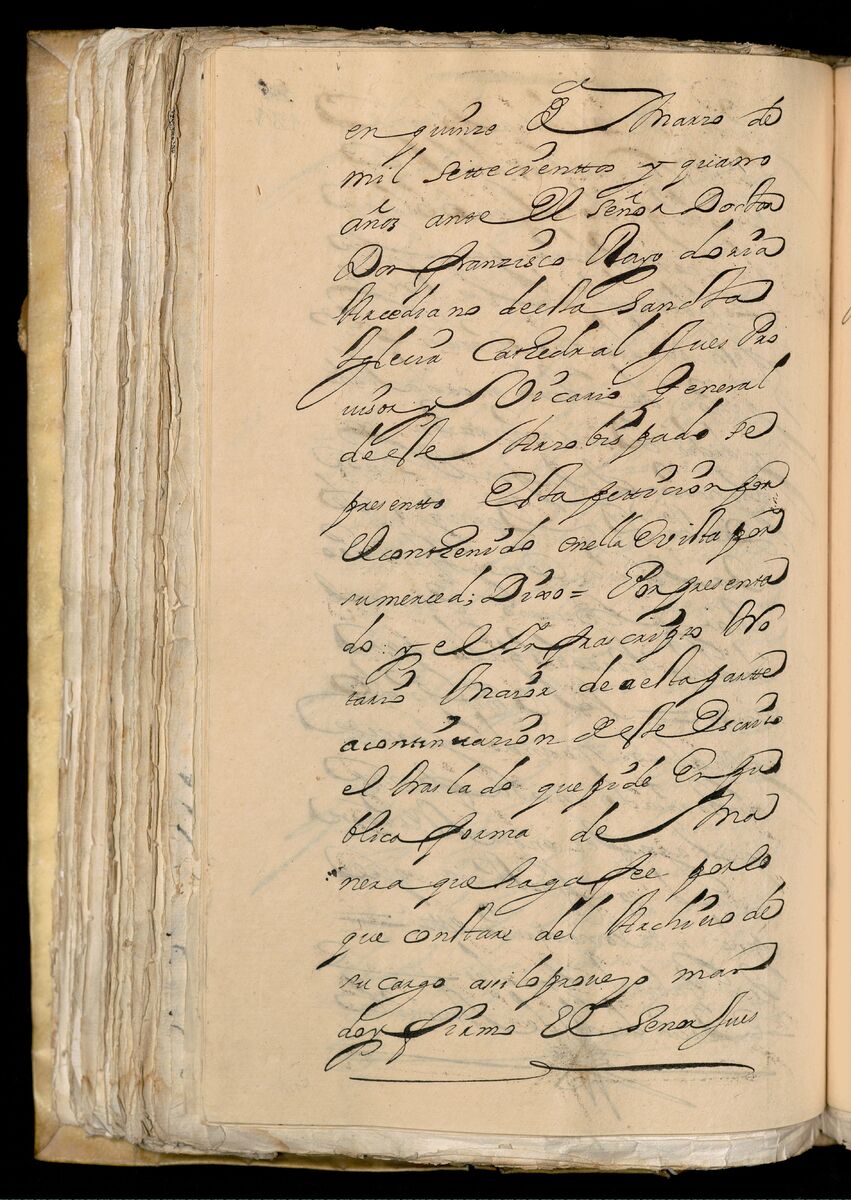 en quinze de Marzo de
mil settecienttos y quatro
años ante El señor Doctor
Don franzisco Rayo doria
Arcediano de esta Sancta
Iglecia Cathedral Jues Pro
uisor y Vicario General
de este Arzobispado se
presentto Esta petticion por
El conthenido en ella E vista por
su merced; Dixo = Por presenta
do y el Infrascripto No
tario Maior de a esta partte
a continuazion de este Escrito
el traslado que pide En pu
blica forma de Ma
nera que haga fee por lo
que constare del Archiuo de
su cargo assi lo proueyo man
do y firmo El señor Jues